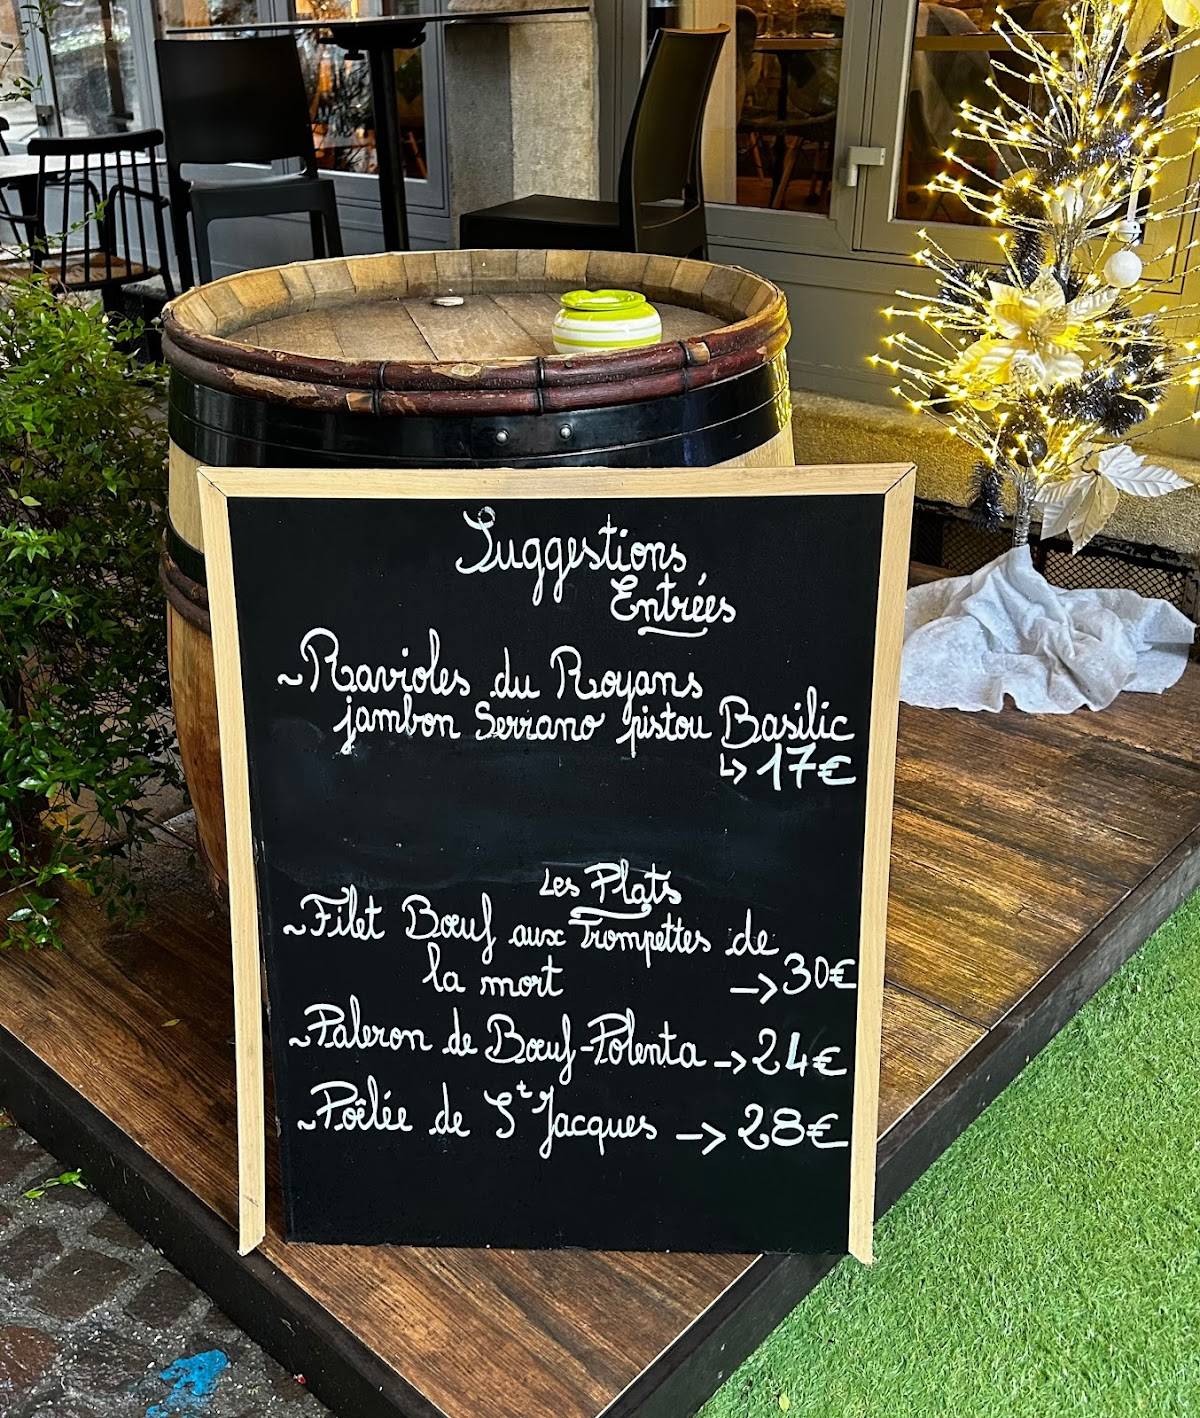 Suggestions
Entrées
~Ravioles du Royans
jambon Serrano pistou Basilic
↳ 17€
Les Plats
~Filet Bœuf aux Trompettes de
la mort -> 30€
~Paleron de Bœuf-Polenta -> 24€
~Poêlée de St Jacques -> 28€